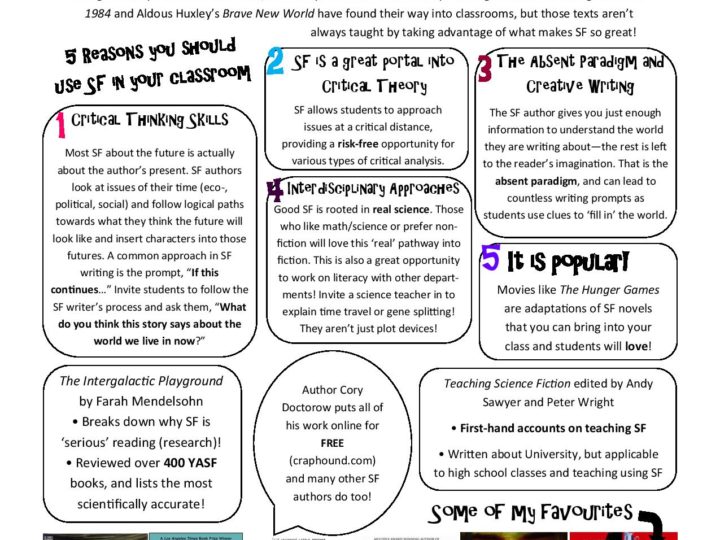 1984 and Aldous Huxley's Brave New World have found their way into classrooms, but those texts aren't
always taught by taking advantage of what makes SF so great!
5 Reasons you should
use SF in your classroom
1 Critical Thinking Skills
Most SF about the future is actually
about the author's present. SF authors
look at issues of their time (eco-,
political, social) and follow logical paths
towards what they think the future will
look like and insert characters into those
futures. A common approach in SF
writing is the prompt, "If this
continues…" Invite students to follow the
SF writer's process and ask them, "What
do you think this story says about the
world we live in now?"
2 SF is a great portal into
Critical Theory
SF allows students to approach
issues at a critical distance,
providing a risk-free opportunity for
various types of critical analysis.
3 The Absent Paradigm and
Creative Writing
The SF author gives you just enough
information to understand the world
they are writing about—the rest is left
to the reader's imagination. That is the
absent paradigm, and can lead to
countless writing prompts as
students use clues to 'fill in' the world.
4 Interdisciplinary Approaches
Good SF is rooted in real science. Those
who like math/science or prefer non-
fiction will love this 'real' pathway into
fiction. This is also a great opportunity
to work on literacy with other depart-
ments! Invite a science teacher in to
explain time travel or gene splitting!
They aren't just plot devices!
5 It is popular!
Movies like The Hunger Games
are adaptations of SF novels
that you can bring into your
class and students will love!
The Intergalactic Playground
by Farah Mendelsohn
• Breaks down why SF is
'serious' reading (research)!
• Reviewed over 400 YASF
books, and lists the most
scientifically accurate!
Author Cory
Doctorow puts all of
his work online for
FREE
(craphound.com)
and many other SF
authors do too!
Teaching Science Fiction edited by Andy
Sawyer and Peter Wright
• First-hand accounts on teaching SF
• Written about University, but applicable
to high school classes and teaching using SF
Some of My Favourites